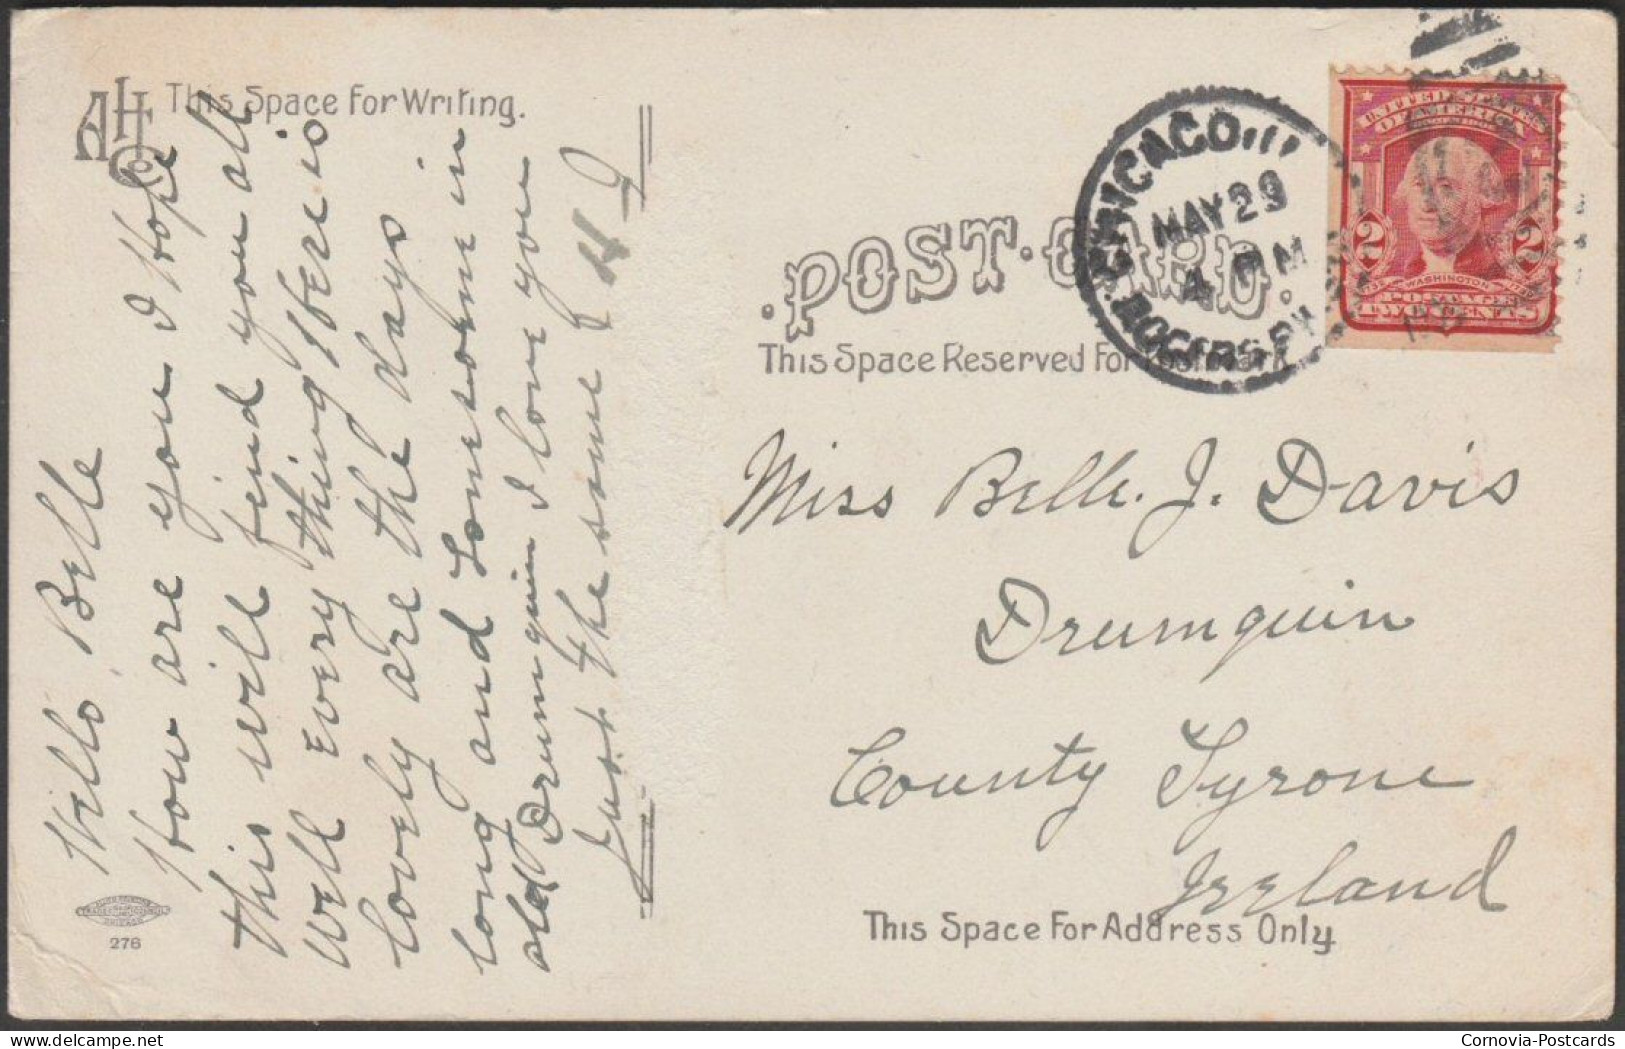 AH
This Space For Writing.
Hello Belle
How are you I Hope
this will find you all
well Every thing Here is
lovely are the days
long and Lonesome in
old Drumquin I love you
Just the same
H
276
POST CARD.
This Space Reserved For Postmark
CHICAGO, ILL
MAY 29
4 PM
ROGERS PK
UNITED STATES
OF AMERICA
WASHINGTON
2 2
POSTAGE
TWO CENTS
Miss Belle. J. Davis
Drumquin
County Tyrone
Ireland
This Space For Address Only
Cornovia-Postcards